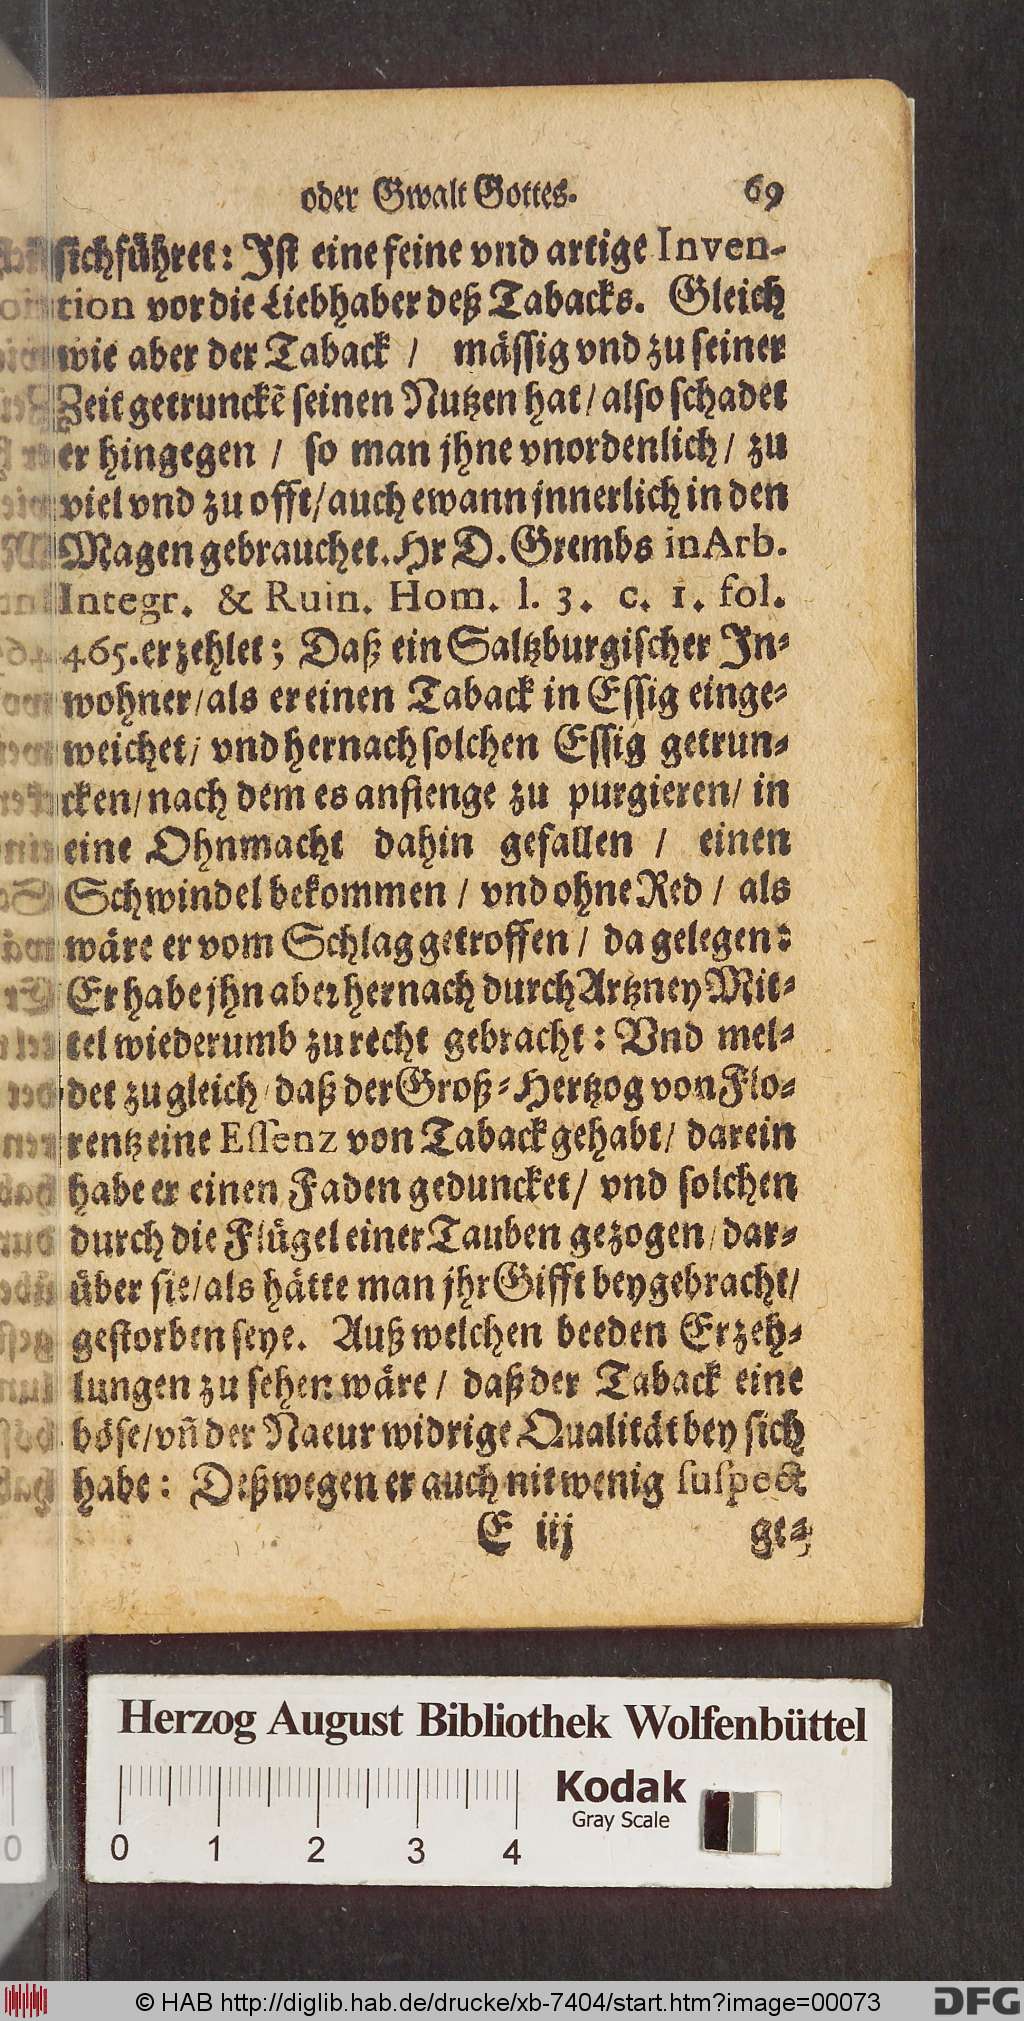 oder Gwalt Gottes. 69
sich führet: Ist eine feine vnd artige Inven-
tion vor die Liebhaber deß Tabacks. Gleich
wie aber der Taback / mässig vnd zu seiner
Zeit getrunckẽ seinen Nutzen hat / also schadet
er hingegen / so man jhne vnordenlich / zu
viel vnd zu offt / auch ewann jnnerlich in den
Magen gebrauchet. Hr D. Grembs in Arb.
Integr. & Ruin. Hom. l. 3. c. 1. fol.
465. erzehlet; Daß ein Saltzburgischer In-
wohner / als er einen Taback in Essig einge-
weichet / vnd hernach solchen Essig getrun-
cken / nach dem es anfienge zu purgieren / in
eine Ohnmacht dahin gefallen / einen
Schwindel bekommen / vnd ohne Red / als
wäre er vom Schlag getroffen / da gelegen:
Er habe jhn aber hernach durch Artzney Mit-
tel wiederumb zu recht gebracht: Vnd mel-
det zugleich / daß der Groß-Hertzog von Flo-
rentz eine Essenz von Taback gehabt / darein
habe er einen Faden geduncket / vnd solchen
durch die Flügel einer Tauben gezogen / dar-
über sie / als hätte man jhr Gifft beygebracht /
gestorben seye. Auß welchen beeden Erzeh-
lungen zu sehen wäre / daß der Taback eine
böse / vñ der Natur widrige Qualität bey sich
habe: Deßwegen er auch nit wenig suspect
E iij ge-
Herzog August Bibliothek Wolfenbüttel
Kodak
Gray Scale
0 1 2 3 4
© HAB http://diglib.hab.de/drucke/xb-7404/start.htm?image=00073
DFG